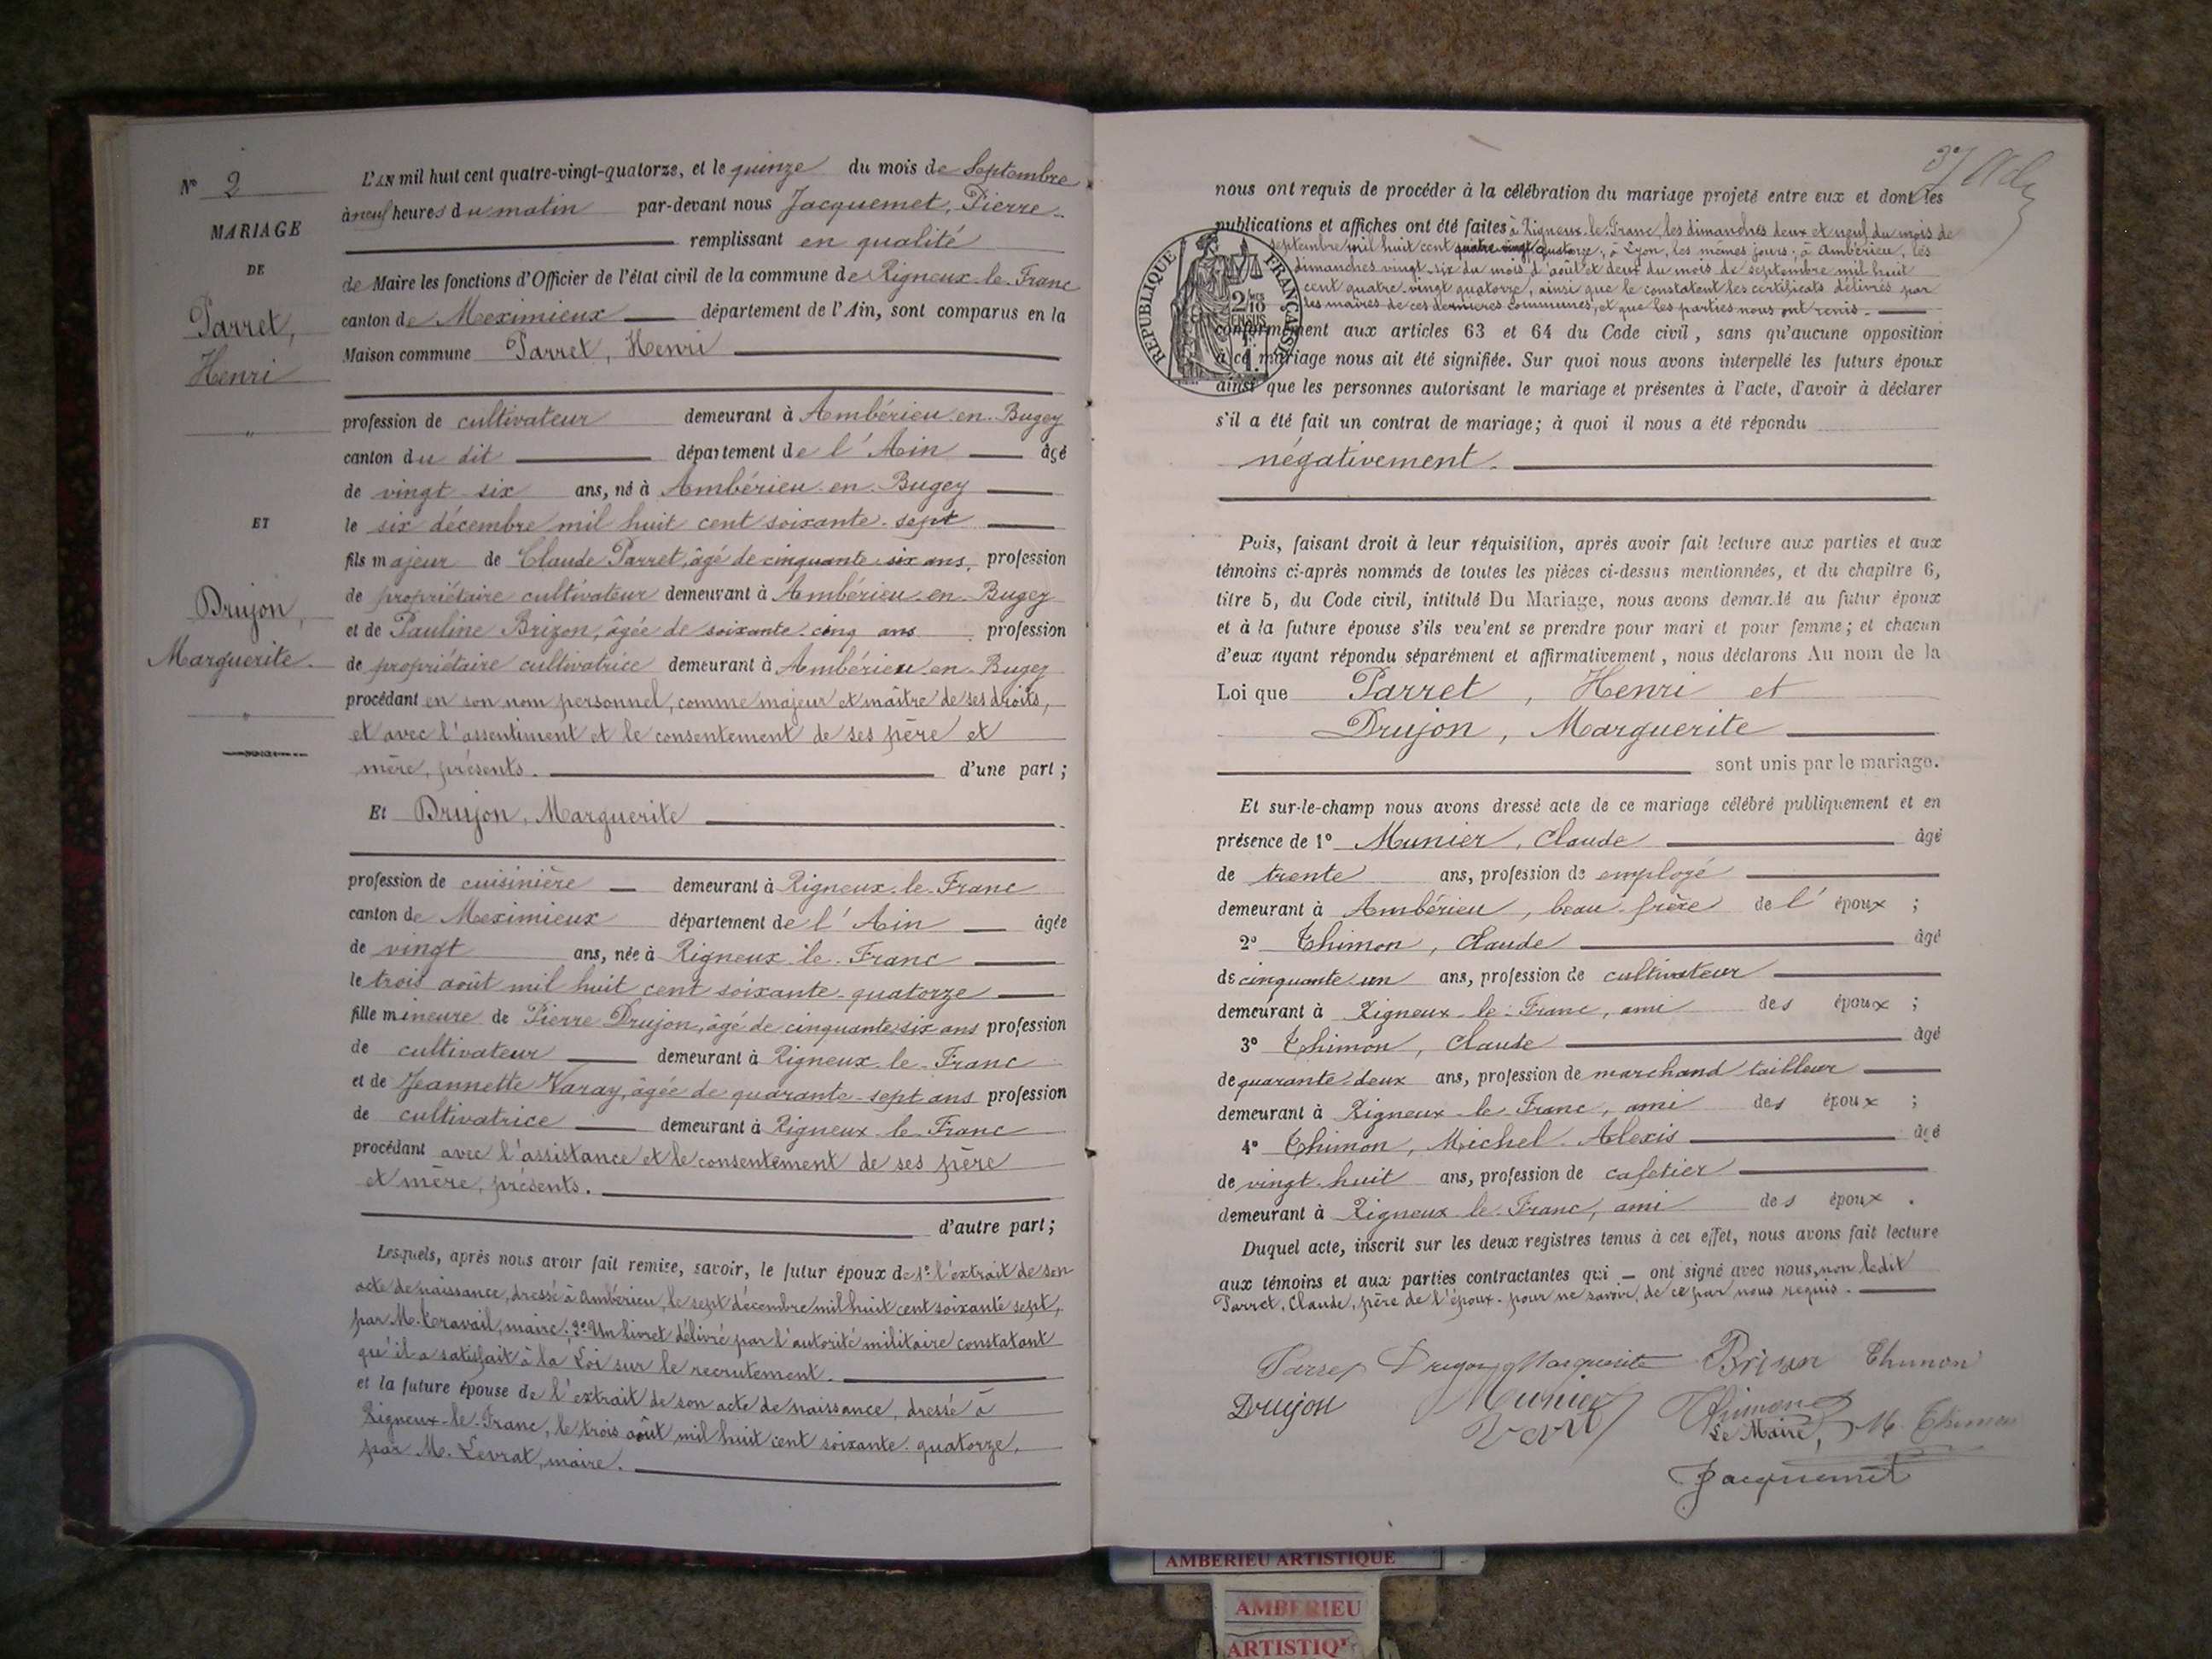 N° 2
MARIAGE
DE
Parret,
Henri
"
ET
Drujon,
Marguerite.
"
L'AN mil huit cent quatre-vingt-quatorze, et le quinze du mois de Septembre
à neuf heures du matin par-devant nous Jacquemet, Pierre
remplissant en qualité
de Maire les fonctions d'Officier de l'état civil de la commune de Rigneux-le-Franc
canton de Meximieux département de l'Ain, sont comparus en la
Maison commune Parret, Henri
profession de cultivateur demeurant à Ambérieu-en-Bugey
canton du dit département de l'Ain âgé
de vingt-six ans, né à Ambérieu-en-Bugey
le six décembre mil huit cent soixante-sept
fils majeur de Claude Parret, âgé de cinquante-six ans, profession
de propriétaire cultivateur demeurant à Ambérieu-en-Bugey
et de Pauline Brizon, âgée de soixante-cinq ans profession
de propriétaire cultivatrice demeurant à Ambérieu-en-Bugey
procédant en son nom personnel, comme majeur et maître de ses droits,
et avec l'assentiment et le consentement de ses père et
mère, présents. d'une part;
Et Drujon, Marguerite
profession de cuisinière demeurant à Rigneux-le-Franc
canton de Meximieux département de l'Ain âgée
de vingt ans, née à Rigneux-le-Franc
le trois août mil huit cent soixante-quatorze
fille mineure de Pierre Drujon, âgé de cinquante-six ans profession
de cultivateur demeurant à Rigneux-le-Franc
et de Jeannette Varay, âgée de quarante-sept ans profession
de cultivatrice demeurant à Rigneux-le-Franc
procédant avec l'assistance et le consentement de ses père
et mère, présents.
d'autre part;
Lesquels, après nous avoir fait remise, savoir, le futur époux de 1° l'extrait de son
acte de naissance, dressé à Ambérieu, le sept décembre mil huit cent soixante sept,
par M. maire; 2° Un livret délivré par l'autorité militaire constatant
qu'il a satisfait à la Loi sur le recrutement.
et la future épouse de l'extrait de son acte de naissance, dressé à
Rigneux-le-Franc, le trois août mil huit cent soixante-quatorze,
par M. Levrat, maire.
nous ont requis de procéder à la célébration du mariage projeté entre eux et dont les
publications et affiches ont été faites à Rigneux-le-Franc, les dimanches deux et neuf du mois de
septembre mil huit cent quatre-vingt-quatorze; à Lyon, les mêmes jours; à Ambérieu, les
dimanches vingt-six du mois d'août et deux du mois de septembre mil huit
cent quatre-vingt-quatorze, ainsi que le constatent les certificats délivrés par
les maires de ces dernières communes, et que les parties nous ont remis.
REPUBLIQUE FRANÇAISE
conformément aux articles 63 et 64 du Code civil, sans qu'aucune opposition
à ce mariage nous ait été signifiée. Sur quoi nous avons interpellé les futurs époux
ainsi que les personnes autorisant le mariage et présentes à l'acte, d'avoir à déclarer
s'il a été fait un contrat de mariage; à quoi il nous a été répondu
négativement.
Puis, faisant droit à leur réquisition, après avoir fait lecture aux parties et aux
témoins ci-après nommés de toutes les pièces ci-dessus mentionnées, et du chapitre 6,
titre 5, du Code civil, intitulé Du Mariage, nous avons demandé au futur époux
et à la future épouse s'ils veulent se prendre pour mari et pour femme; et chacun
d'eux ayant répondu séparément et affirmativement, nous déclarons Au nom de la
Loi que Parret, Henri et
Drujon, Marguerite
sont unis par le mariage.
Et sur-le-champ nous avons dressé acte de ce mariage célébré publiquement et en
présence de 1° Munier, Claude âgé
de trente ans, profession de employé
demeurant à Ambérieu, beau-frère de l'époux;
2° Thimon, Claude âgé
de cinquante-un ans, profession de cultivateur
demeurant à Rigneux-le-Franc, ami des époux;
3° Thimon, Claude âgé
de quarante-deux ans, profession de marchand tailleur
demeurant à Rigneux-le-Franc, ami des époux;
4° Thimon, Michel Alexis âgé
de vingt-huit ans, profession de cafetier
demeurant à Rigneux-le-Franc, ami des époux.
Duquel acte, inscrit sur les deux registres tenus à cet effet, nous avons fait lecture
aux témoins et aux parties contractantes qui ont signé avec nous, non ledit
Parret, Claude, père de l'époux pour ne savoir, de ce par nous requis.
Parret Drujon Marguerite Brizon Thimon
Drujon Munier Thimon
Le Maire, M. Thimon
Jacquemet
AMBERIEU ARTISTIQUE
AMBERIEU
ARTISTIQUE